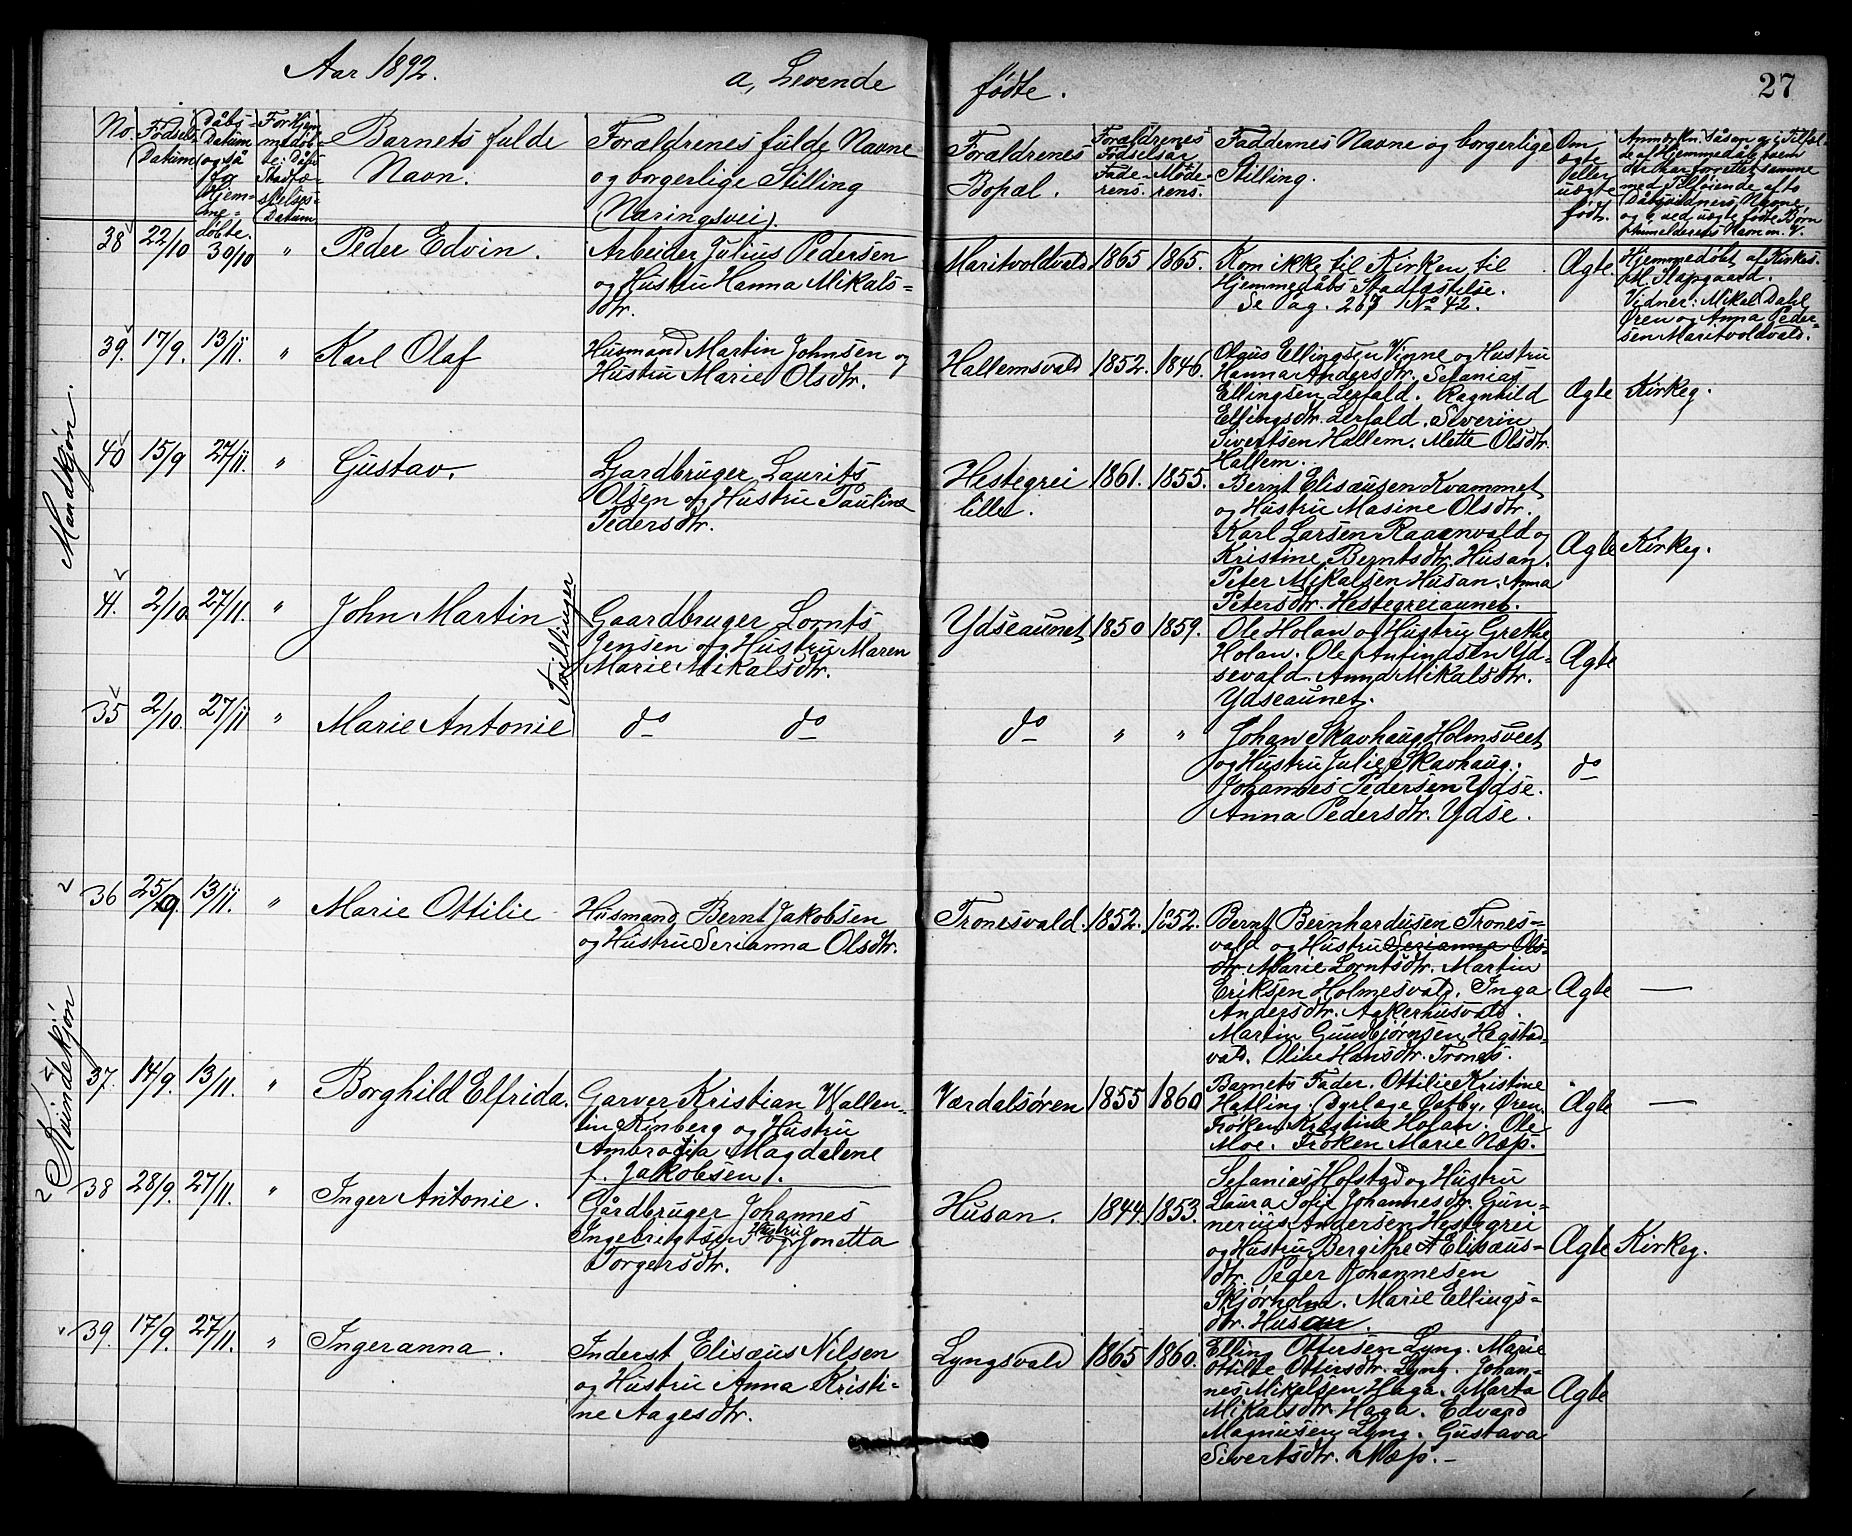 Aar 1892.
a, Levende
fødte.
27
No.
Fødsels
Datum
Dåbs-
Datum
også
for
Hjem-
me-
døbte.
For Hjem-
medøb-
te: Dåbs
Stadfæ-
stelses-
Datum
Barnets fulde
Navn.
Forældrenes fulde Navne
og borgerlige Stilling
(Næringsvei).
Forældrenes
Bopæl.
Forældrenes
Fødselsår
Fade-
rens.
Mode-
rens.
Faddernes Navne og borgerlige
Stilling.
Om
ægte
eller
uægte
født.
Mandkjøn.
38 22/10 30/10 " Peder Edvin.
Arbeider Julius Pedersen
og Hustru Hanna Mikals-
dtr.
Maritvoldvald 1865 1865.
Kom ikke til Kirken til
Hjemmedåbs Stadfæstelse.
Se Pag. 267 No 42.
Ægte.
Hjemmedøbt af Kirkes.
Vidner: Mikal Dahl
Øren og Anna Peder-
sen Maritvoldvald.
39. 17/9. 13/11. " Karl Olaf
Husmand Martin Johnsen og
Hustru Marie Olsdtr.
Hallemsvald 1852. 1846.
Ellingsen Vinne og Hustru
Hanna Andersdtr. Sefanias
Ellingsen Lerfald. Ragnhild
Ellingsdtr. Lerfald. Severin
Sivertsen Hallem. Mette Olsdtr.
Hallem.
Ægte Kirkeg.
40 15/9 27/11. " Gustav.
Gardbruger Laurits
Olsen og Hustru Pauline
Pedersdtr.
Hestegrei
lille.
1861. 1855.
Bernt Elisæusen Kvammet
og Hustru Masine Olsdtr.
Karl Larsen Raaenvald og
Kristine Berntsdtr. Husan.
Peter Mikalsen Husan. Anna
Petersdtr. Hestegreiaunet.
Ægte Kirkeg.
41. 2/10 27/11. " John Martin
Tvillinger
Gaardbruger Lornts
Jensen og Hustru Maren
Marie Mikalsdtr.
Ydseaunet 1850 1859.
Ole Holan og Hustru Grethe
Holan. Ole Anfindsen Yd-
sevald. Anna Mikalsdtr.
Ydseaunet.
Ægte
35 2/10. 27/11 " Marie Antonie
do do
do " "
Johan Skavhaug Holmsveet
og Hustru Julie Skavhaug.
Johannes Pedersen Ydse.
Anna Pedersdtr. Ydse.
do
Kvindekjøn
36 25/9. 13/11. " Marie Ottilie
Husmand Bernt Jakobsen
og Hustru Serianna Olsdtr.
Tronesvald. 1852. 1852.
Bernt Bernhardusen Trones-
vald og Hustru Serianna Ols-
dtr. Marie Lorntsdtr. Martin
Eriksen Holmesvald. Inga
Andersdtr. Aakerhusvald.
Martin Gundbjørnsen Hegstad-
vald. Oline Hansdtr. Trones.
Ægte —
37. 14/9. 13/11. " Borghild Elfrida.
Garver Kristian Wallen-
tin Kinberg og Hustru
Ambrosia Magdalene
f. Jakobsen.
Værdalsøren 1855 1860
Barnets Fader. Ottilie Kristine
Hatling. Dyrlæge Østby. Øren.
Frøken Kristine Holan. Ole
Moe. Frøken Marie Næss.
Ægte —
38 28/9. 27/11. " Inger Antonie.
Gårdbruger Johannes
Ingebrigtsen og Hustru Jonetta
Torgersdtr.
Husan. 1844. 1853.
Sefanias Hofstad og Hustru
Laura Sofie Johannesdtr. Gun-
nerius Andersen Hestegrei
og Hustru Bergithe Elisæus-
dtr. Peder Johannesen
Skjørholm. Marie Ellings-
dtr. Husan.
Ægte Kirkeg.
39. 17/9. 27/11. " Ingeranna.
Inderst Elisæus Nilsen
og Hustru Anna Kristi-
ne Aagesdtr.
Lyngsvald 1865 1860.
Elling Ottersen Lyng. Marie
Ottilie Ottersdtr. Lyng. Johan-
nes Mikalsen Haga. Marta
Mikalsdtr. Haga. Edvard
Magnusen Lyng. Gustava
Sivertsdtr. Næss.-
Ægte